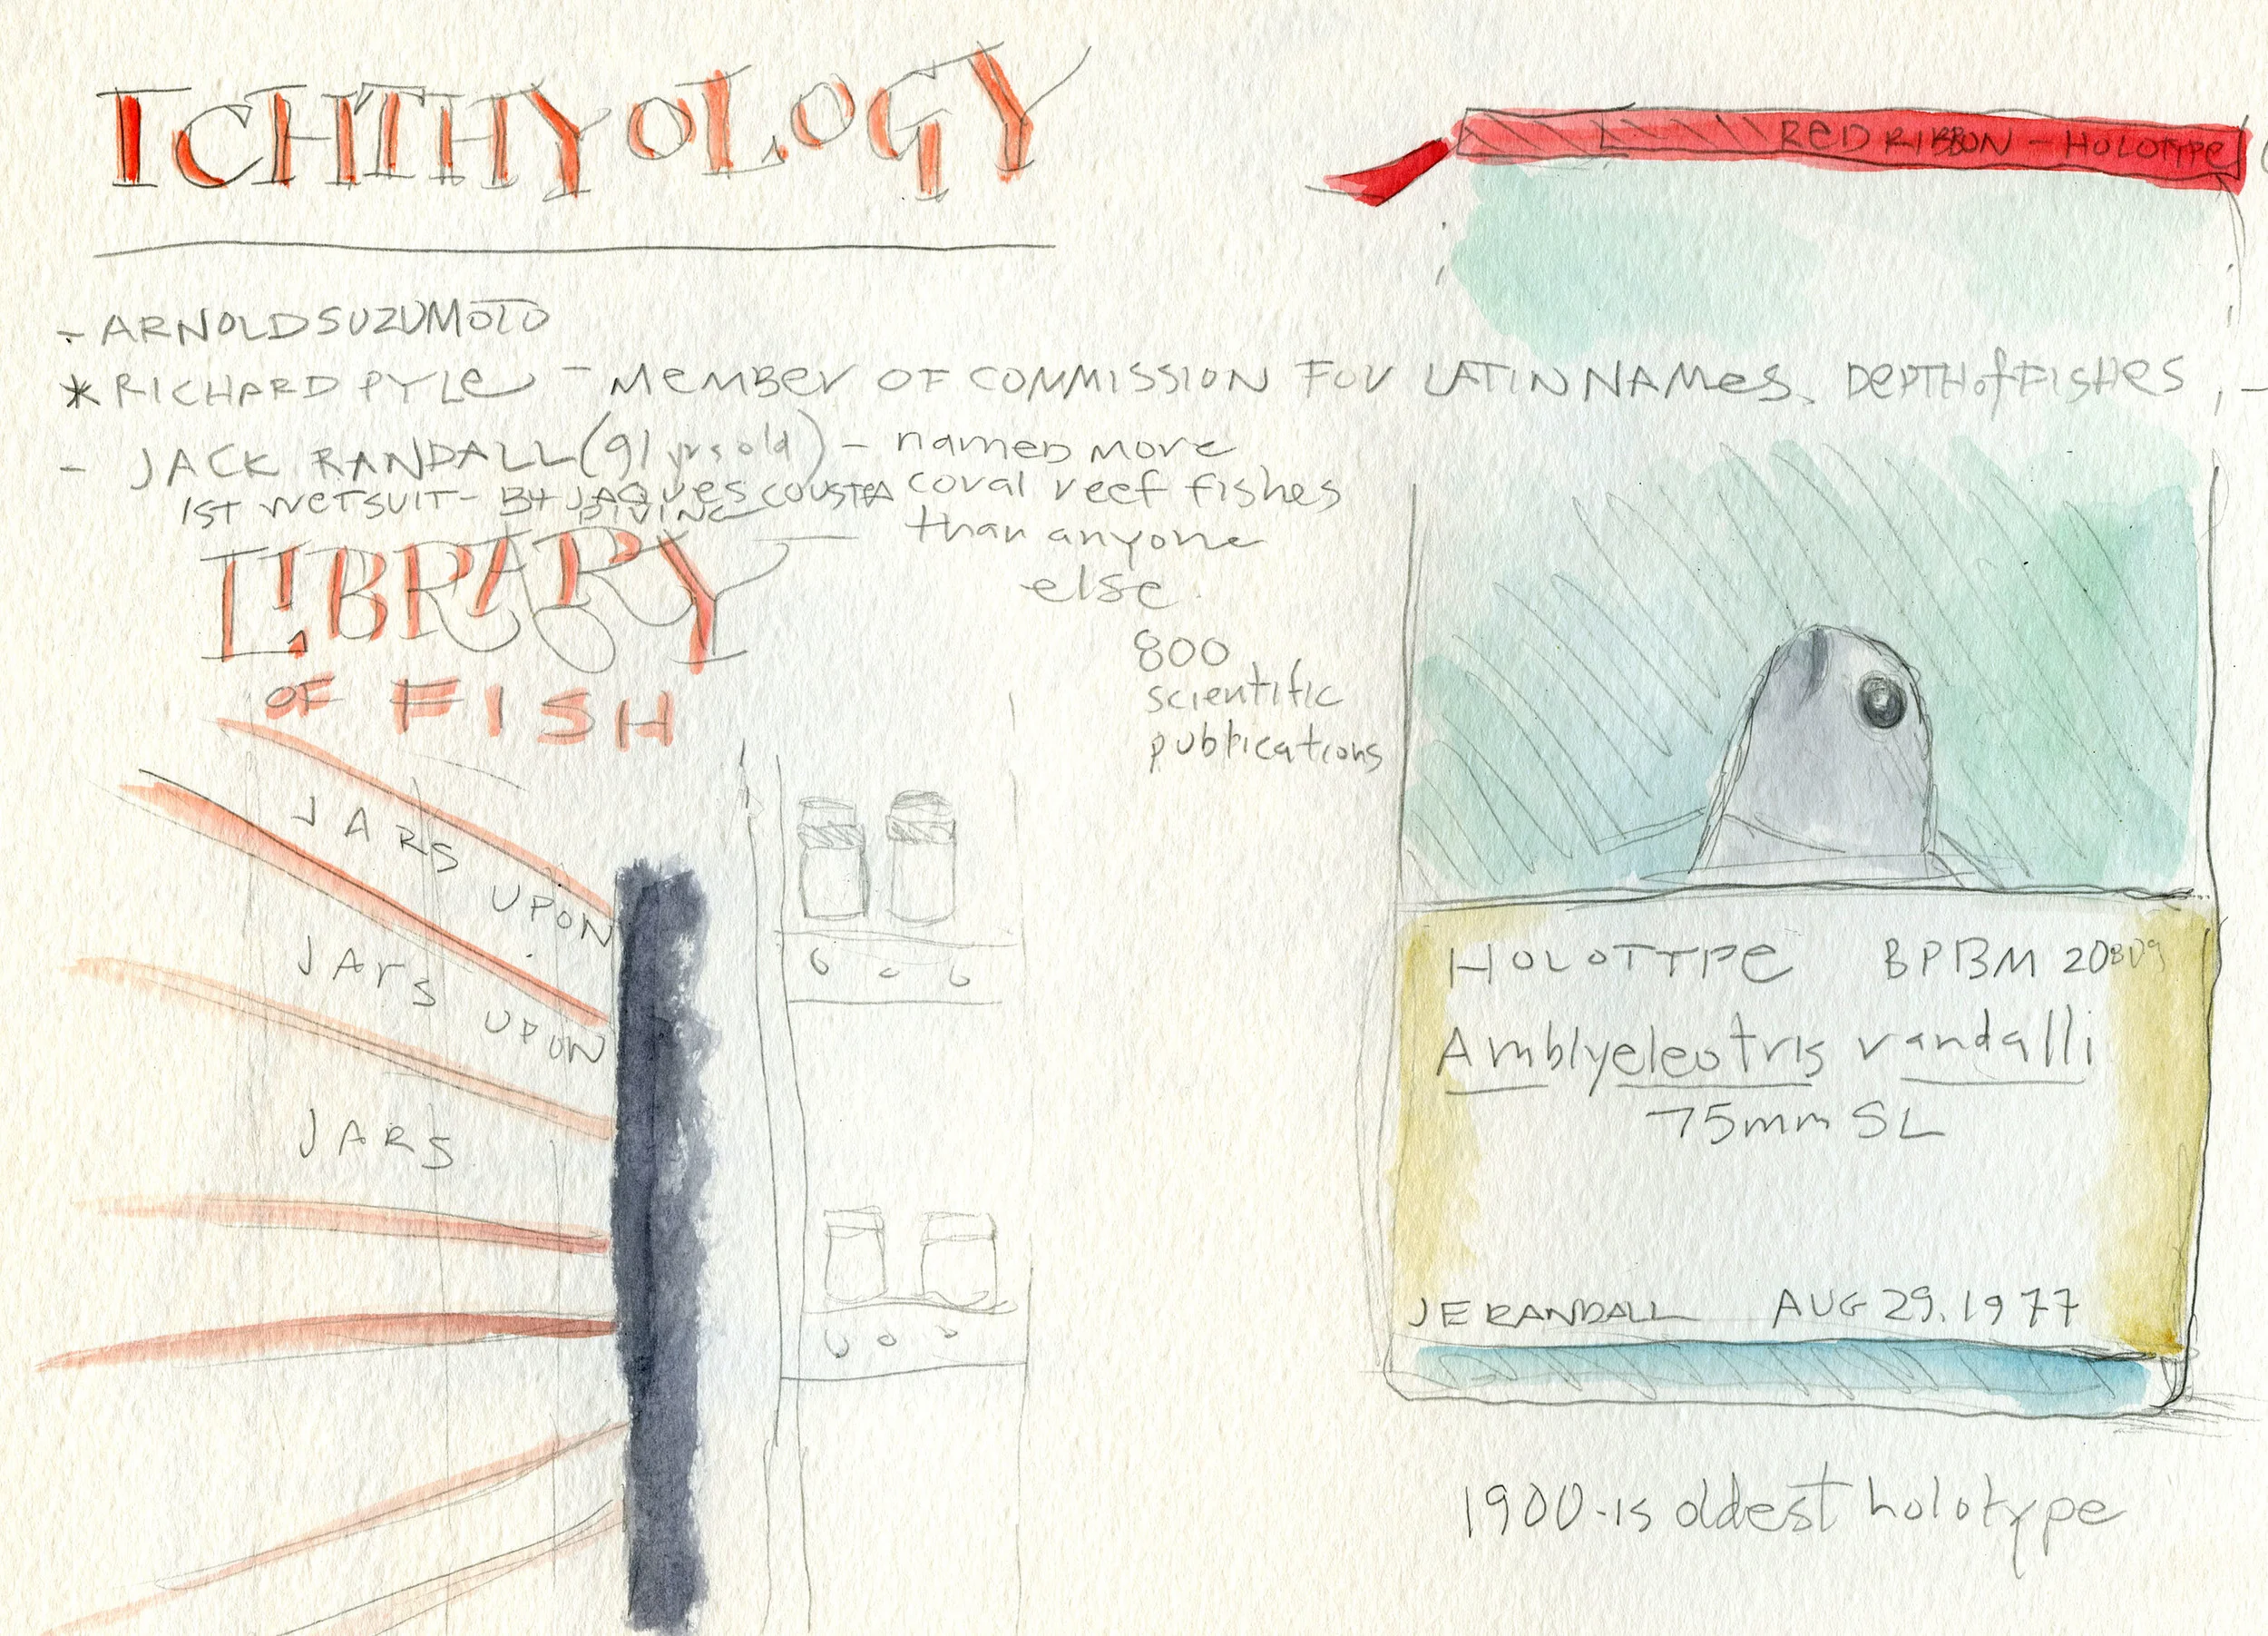 ICHTHYOLOGY
RED RIBBON - HOLOTYPE
- ARNOLD SUZUMOTO
* RICHARD PYLE - MEMBER OF COMMISSION FOR LATIN NAMES, DEPTH of FISHES, -
- JACK RANDALL (91 yrs old) - named more
coral reef fishes
than anyone
else.
1ST WETSUIT - BY JAQUES COUSTEA
DIVING
800
scientific
publications
LIBRARY
OF FISH
JARS
UPON
JARS
UPON
JARS
HOLOTYPE BPBM 20809
Amblyeleotris randalli
75mm SL
JE RANDALL AUG 29. 1977
1900 - is oldest holotype